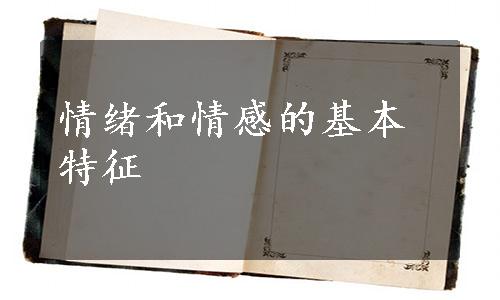 情绪和情感的基本
特征